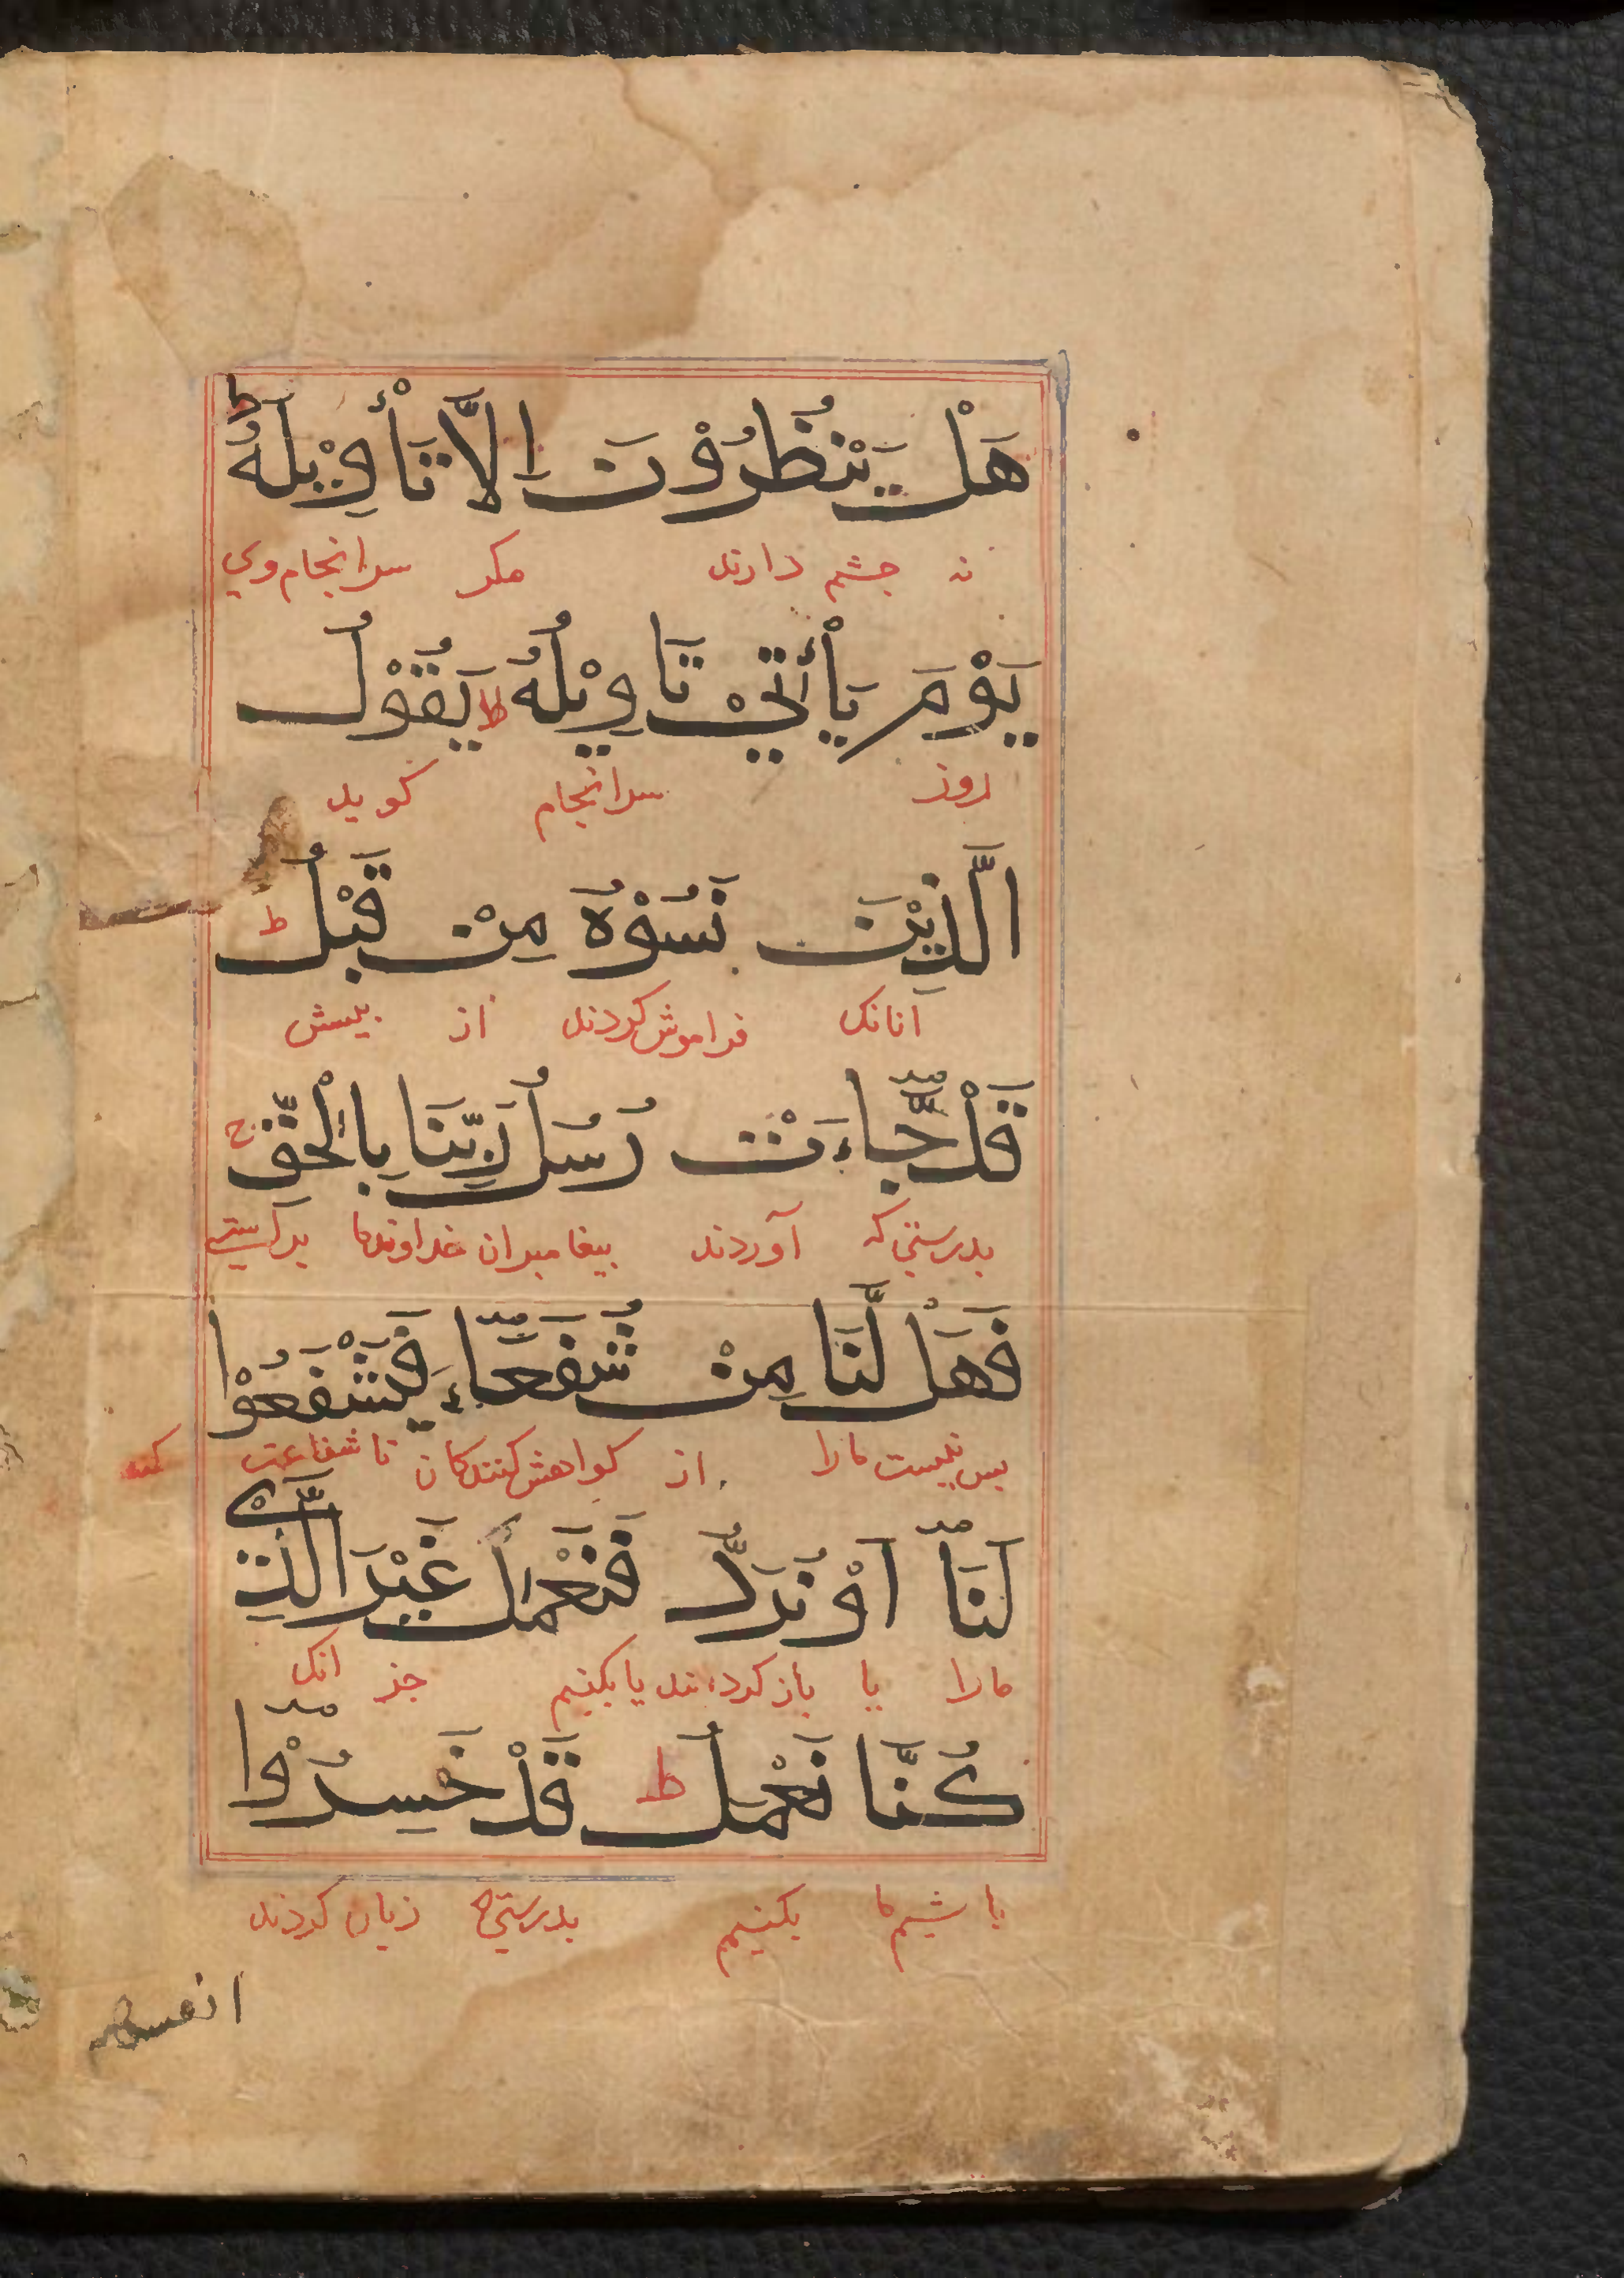 هَلْ يَنْظُرُوْنَ اِلَّا تَأْوِيْلَهُ ط
نه چشم دارند مكر سرانجام وي
يَوْمَ يَأْتِيْ تَاوِيْلُهُ ط يَقُوْلُ
روز سرانجام كويد
الَّذِيْنَ نَسُوْهُ مِنْ قَبْلُ ط
آنانك فراموش كردند از پيش
قَدْ جَّاءَتْ رُسُلُ رَبِّنَا بِالْحَقِّ ج
بدرستي كه آوردند بيغامبران خداوندما براستي
فَهَلْ لَّنَا مِنْ شُفَعَاءَ فَيَشْفَعُوْا
پس نيست مارا از خواهش كنندكان تا شفاعت كند
لَنَا اَوْ نُرَدُّ فَنَعْمَلَ غَيْرَ الَّذِيْ
مارا يا باز كردانند يا بكنيم جز انك
كُنَّا نَعْمَلُ ط قَدْ خَسِرُوْا
باشيم ما بكنيم بدرستي كه زيان كردند
انفسهم